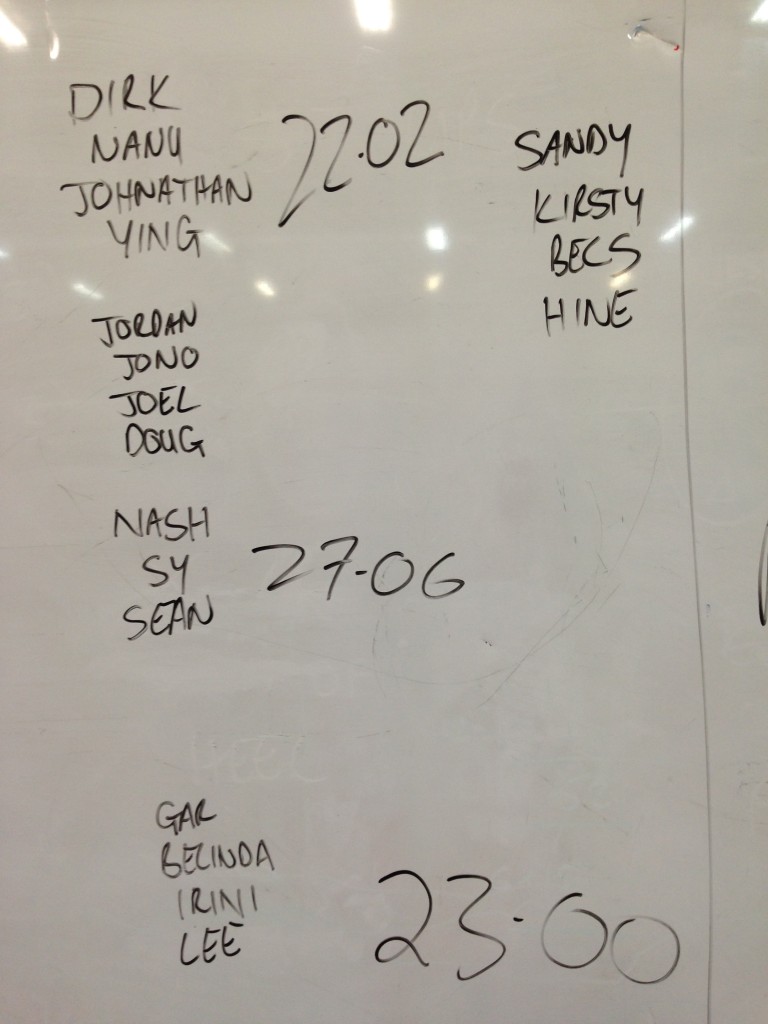 DIRK
NANU
JOHANATHAN
YING
22.02
SANDY
KIRSTY
BECS
HINE
JORDAN
JONO
JOEL
DOUG
NASH
SY
SEAN
27.06
GAR
BELINDA
IRINI
LEE
23.60